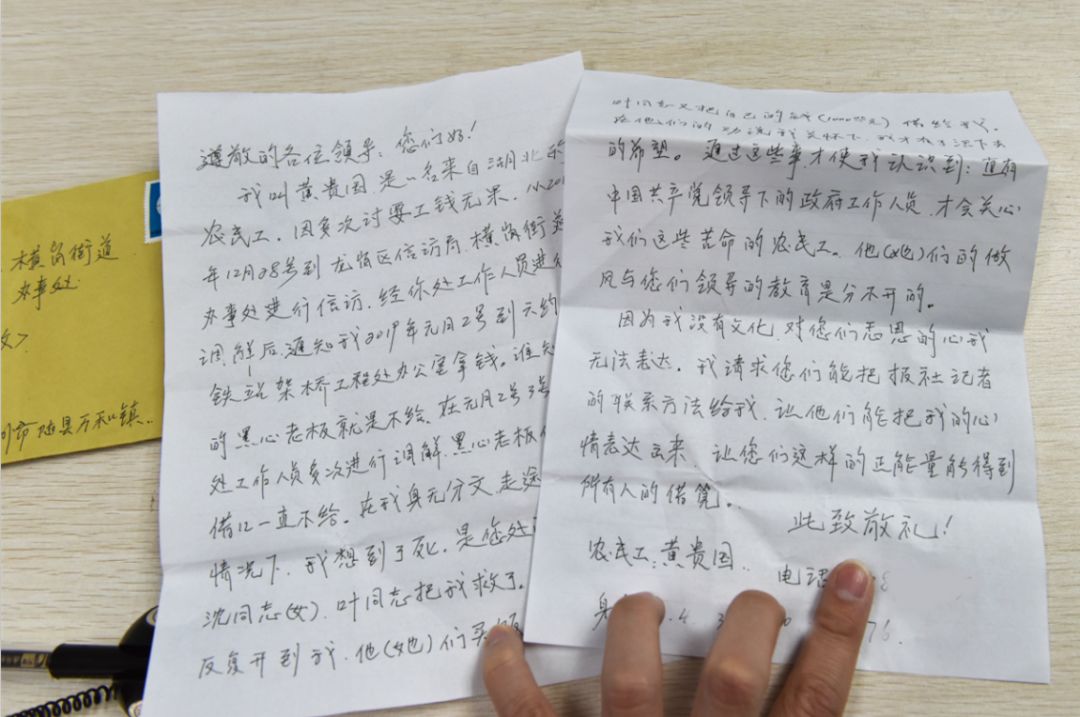 横岗街道
办事处
州市随县万和镇
遵敬的各位领导：您们好！
我叫黄贵国，是一名来自湖北
农民工，因多次讨要工钱无果，小201
年12月28号到龙岗区信访局横岗街道
办事处进行信访，经你处工作人员进行
调解后通知我2019年元月2号到
铁站架桥工程处办公室拿钱。谁知
的黑心老板就是不给，在元月2号3号
处工作人员多次进行调解，黑心老板
借口一直不给。在我身无分文，走途
情况下，我想到了死，是您处
沈同志(女)，叶同志把我救了。
反复开到我，他(她)们买
叶同志又把自己的钱(1000元)借给我。
在他们的劝说和关怀下，我才有了活下去
的希望。通过这些事才使我认识到：只有
中国共产党领导下的政府工作人员，才会关心
我们这些苦命的农民工。他(她)们的做
风与您们领导的教育是分不开的。
因为我没有文化，对您们感恩的心我
无法表达，我请求您们能把报社记者
的联系方法给我，让他们能把我的心
情表达出来，让您们这样的正能量能得到
所有人的借鉴。
此致敬礼！
农民工：黄贵国. 电话
身